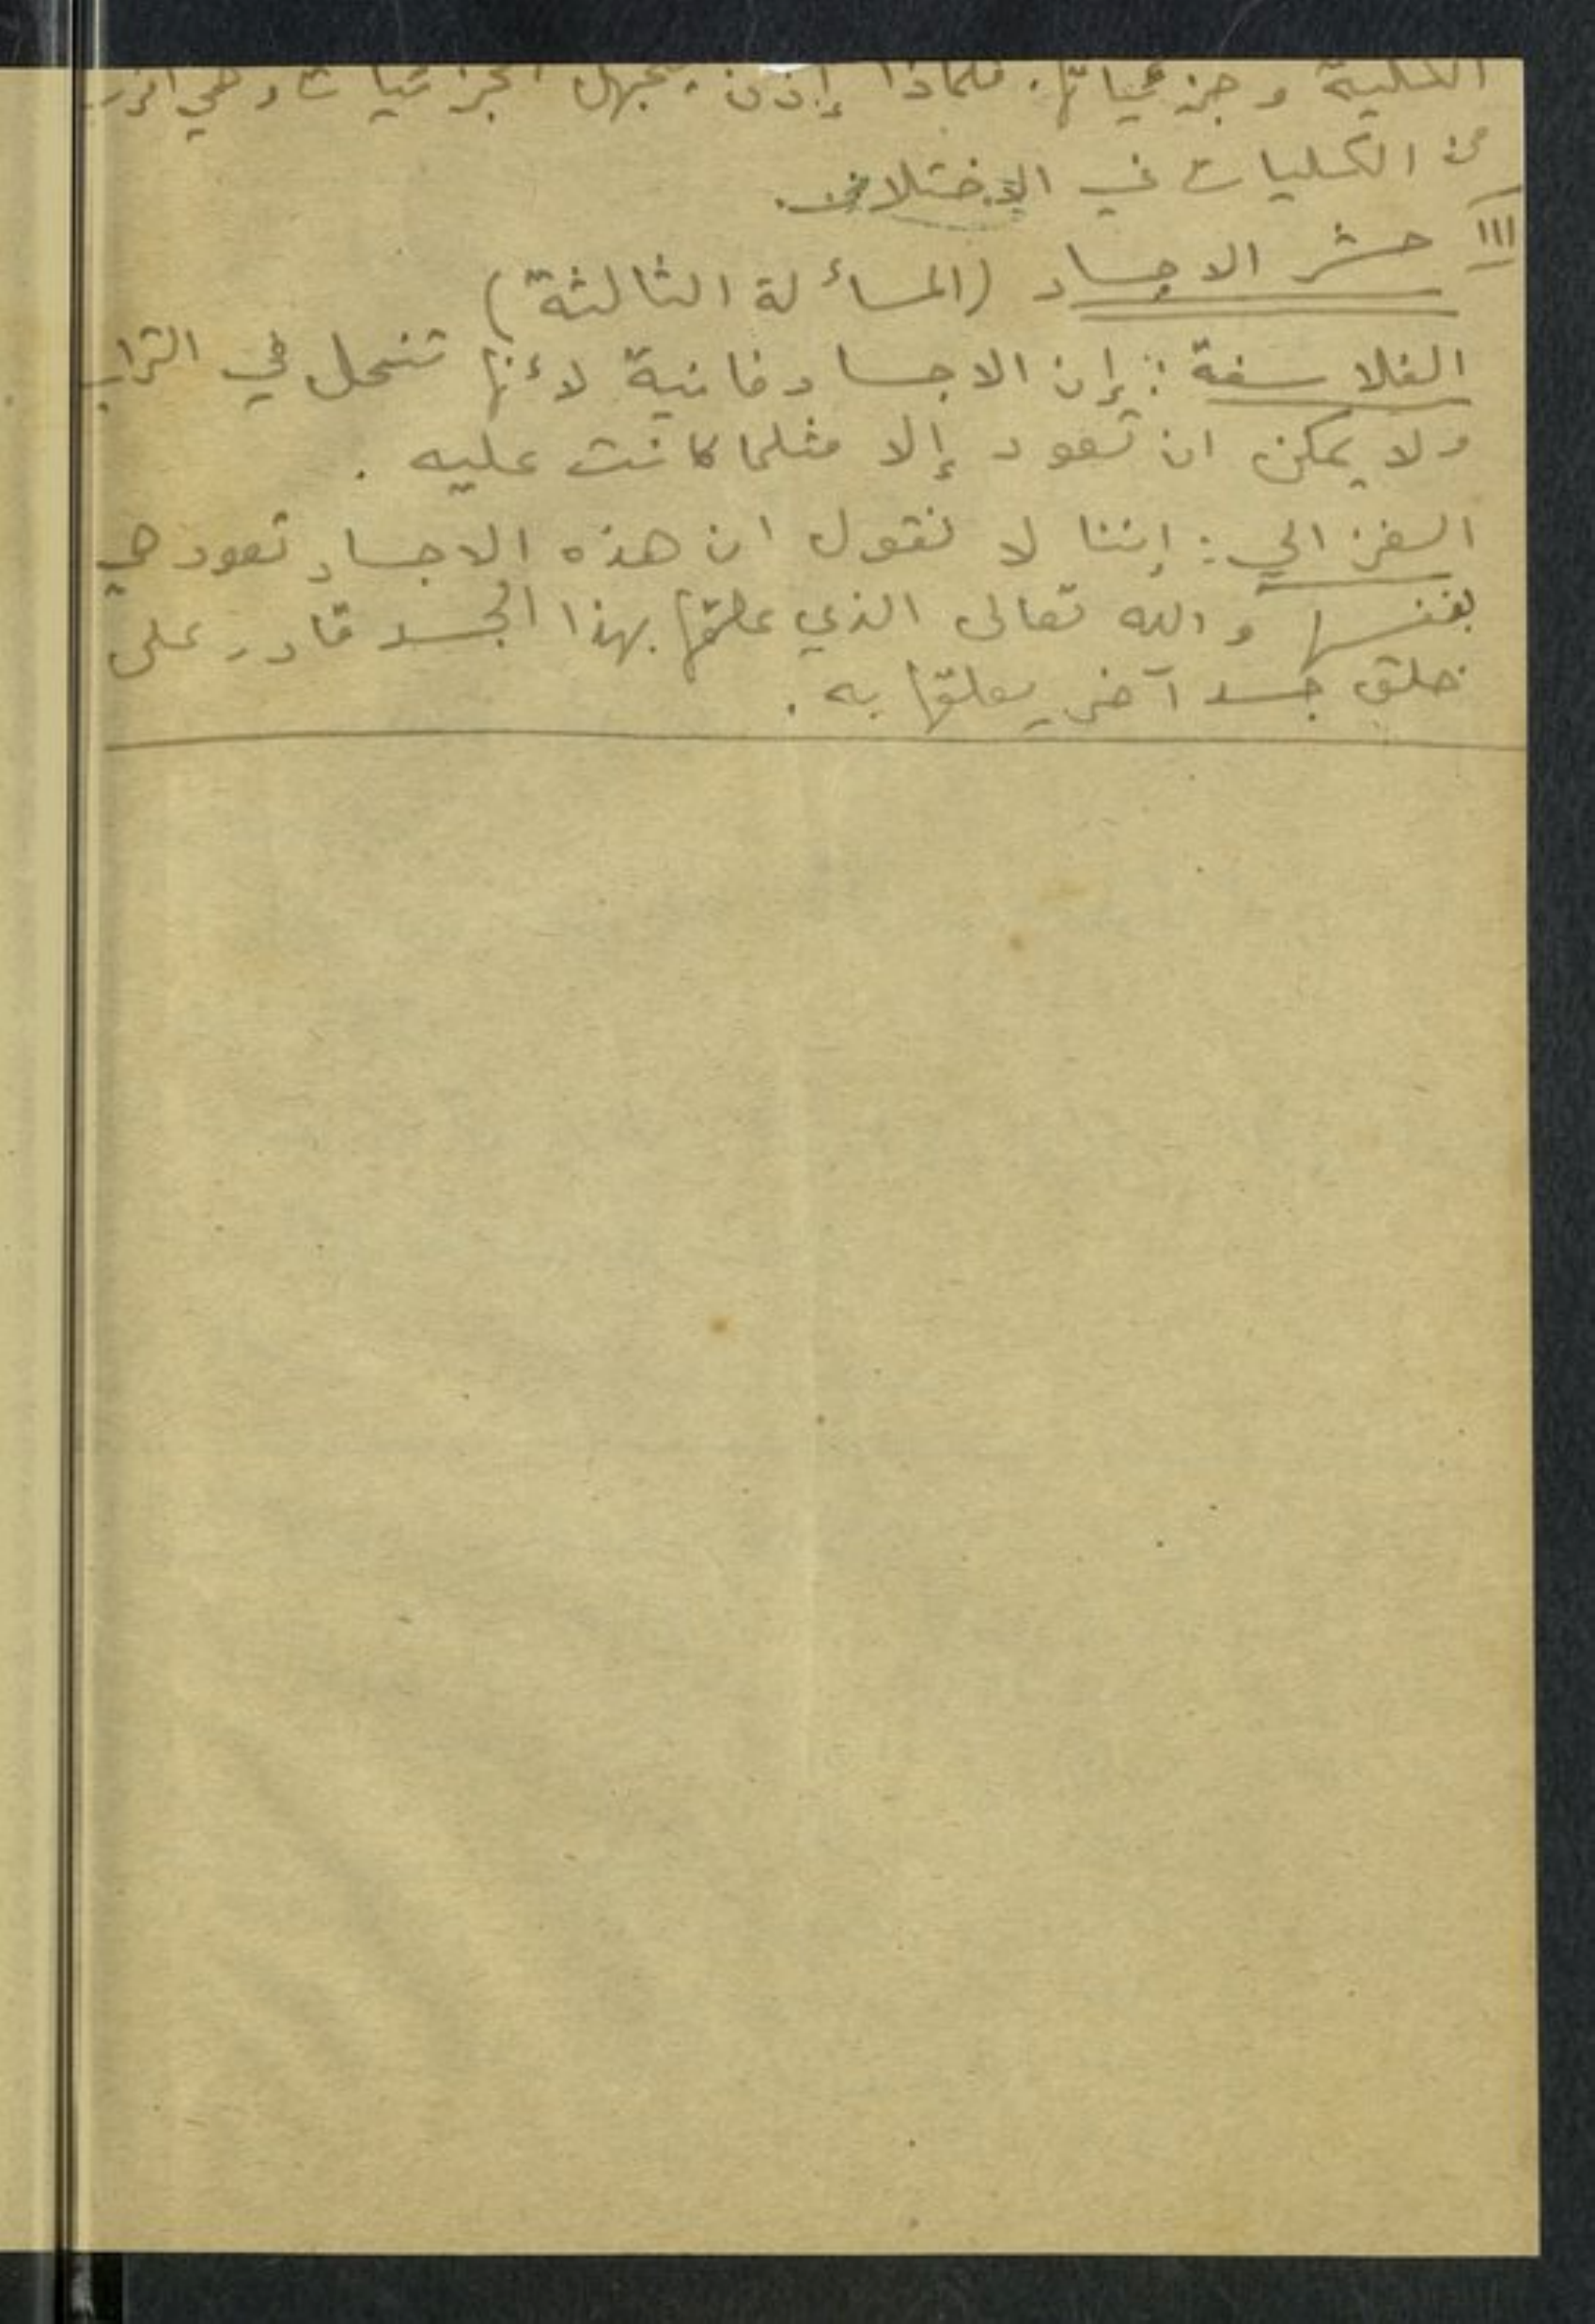 الكلية وجزئياتها. فلماذا إذن يجهل الجزئيات وهي اقرب
من الكليات في الاختلاف.
III حشر الاجساد (المسألة الثالثة)
الفلاسفة: إن الاجساد فانية لأنها تنحل في التراب
ولا يمكن ان تعود إلا مثلما كانت عليه.
الغزالي: إننا لا نقول ان هذه الاجساد تعود هي
بنفسها والله تعالى الذي علقها بهذا الجسد قادر على
خلق جسد آخر يعلقها به.